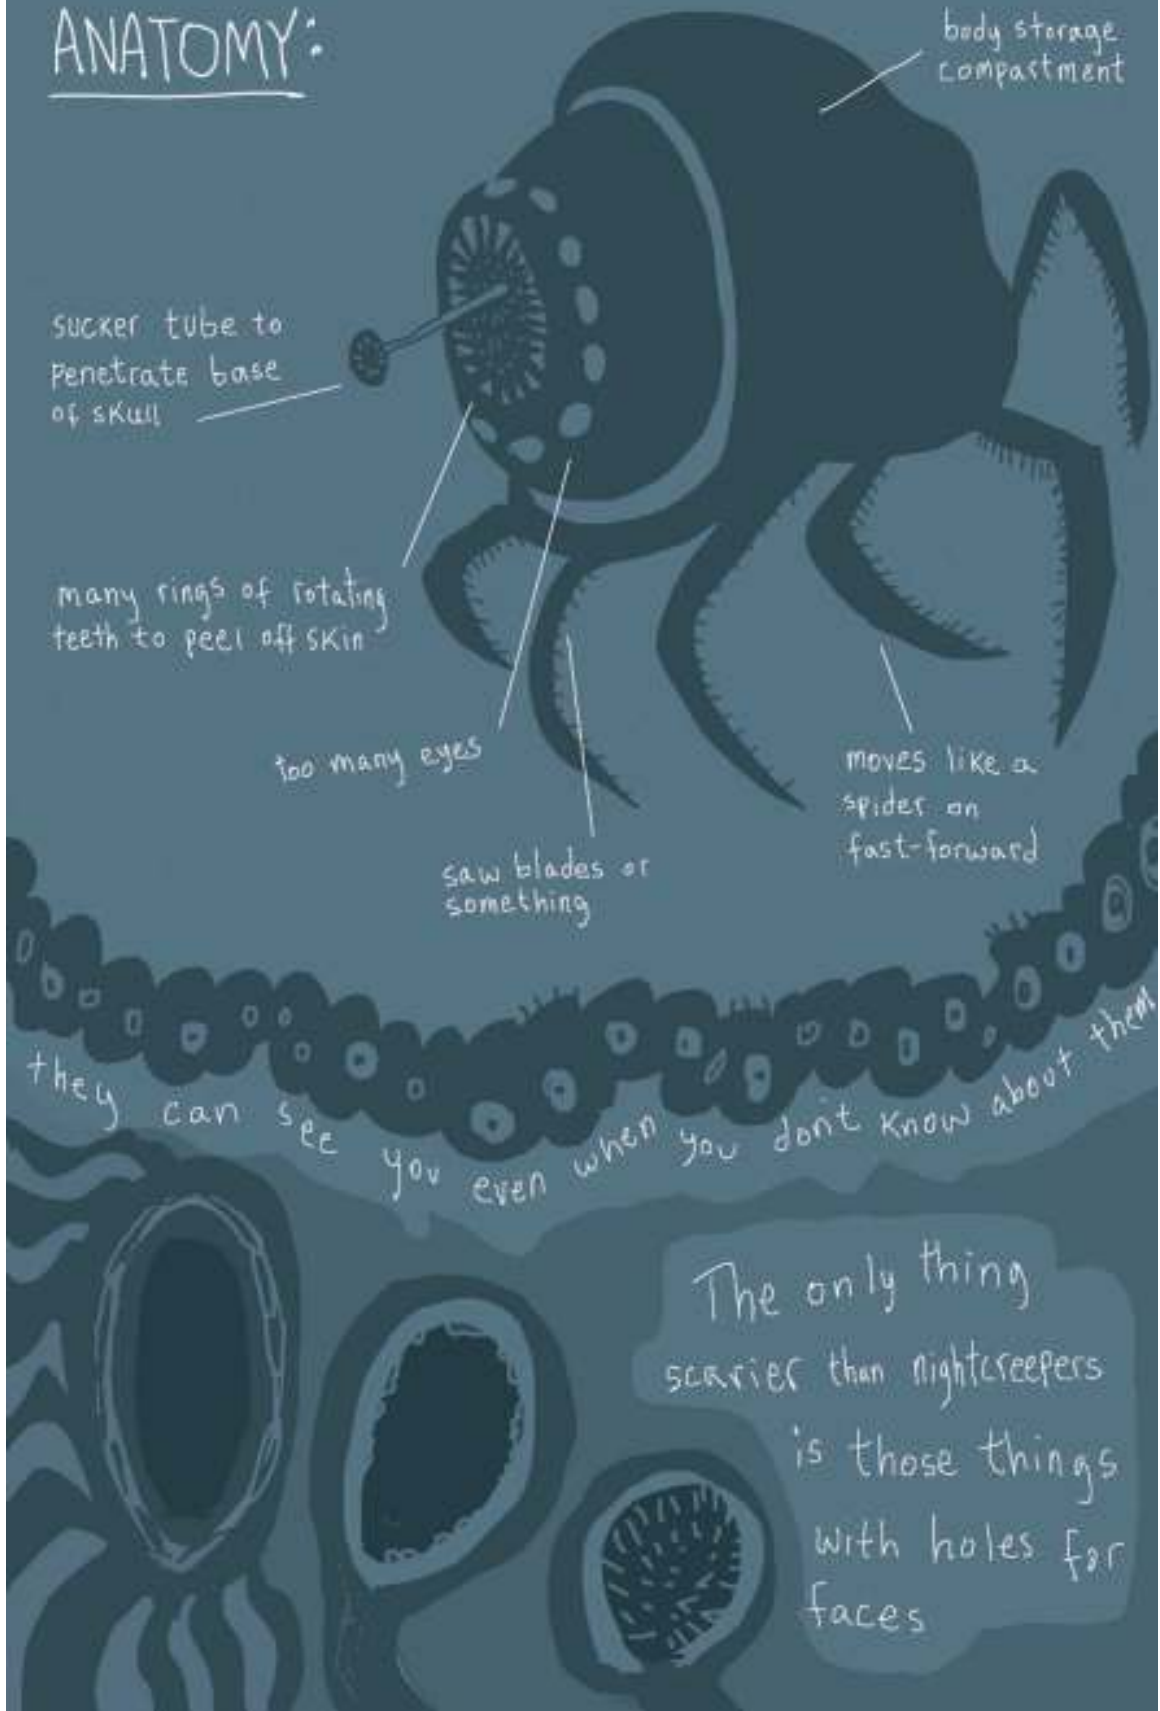 ANATOMY:
body storage
compartment
sucker tube to
penetrate base
of skull
many rings of rotating
teeth to peel off skin
too many eyes
saw blades or
something
moves like a
spider on
fast-forward
they can see you even when you don't know about them
The only thing
scarier than nightcreepers
is those things
with holes for
faces